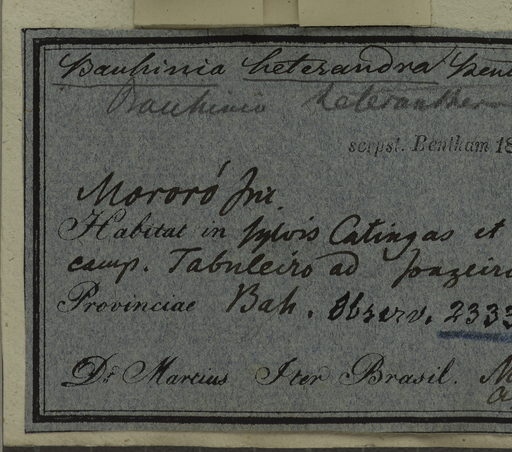 Bauhinia heterandra Bent
Bauhinia heteranthera
scrpst. Bentham 18
Mororó Inc.
Habitat in sylvis Catingas et
camp. Tabuleiro ad Joazeiro
Provinciae Bah. Observ. 2333
Dr Martius Iter Brasil. M